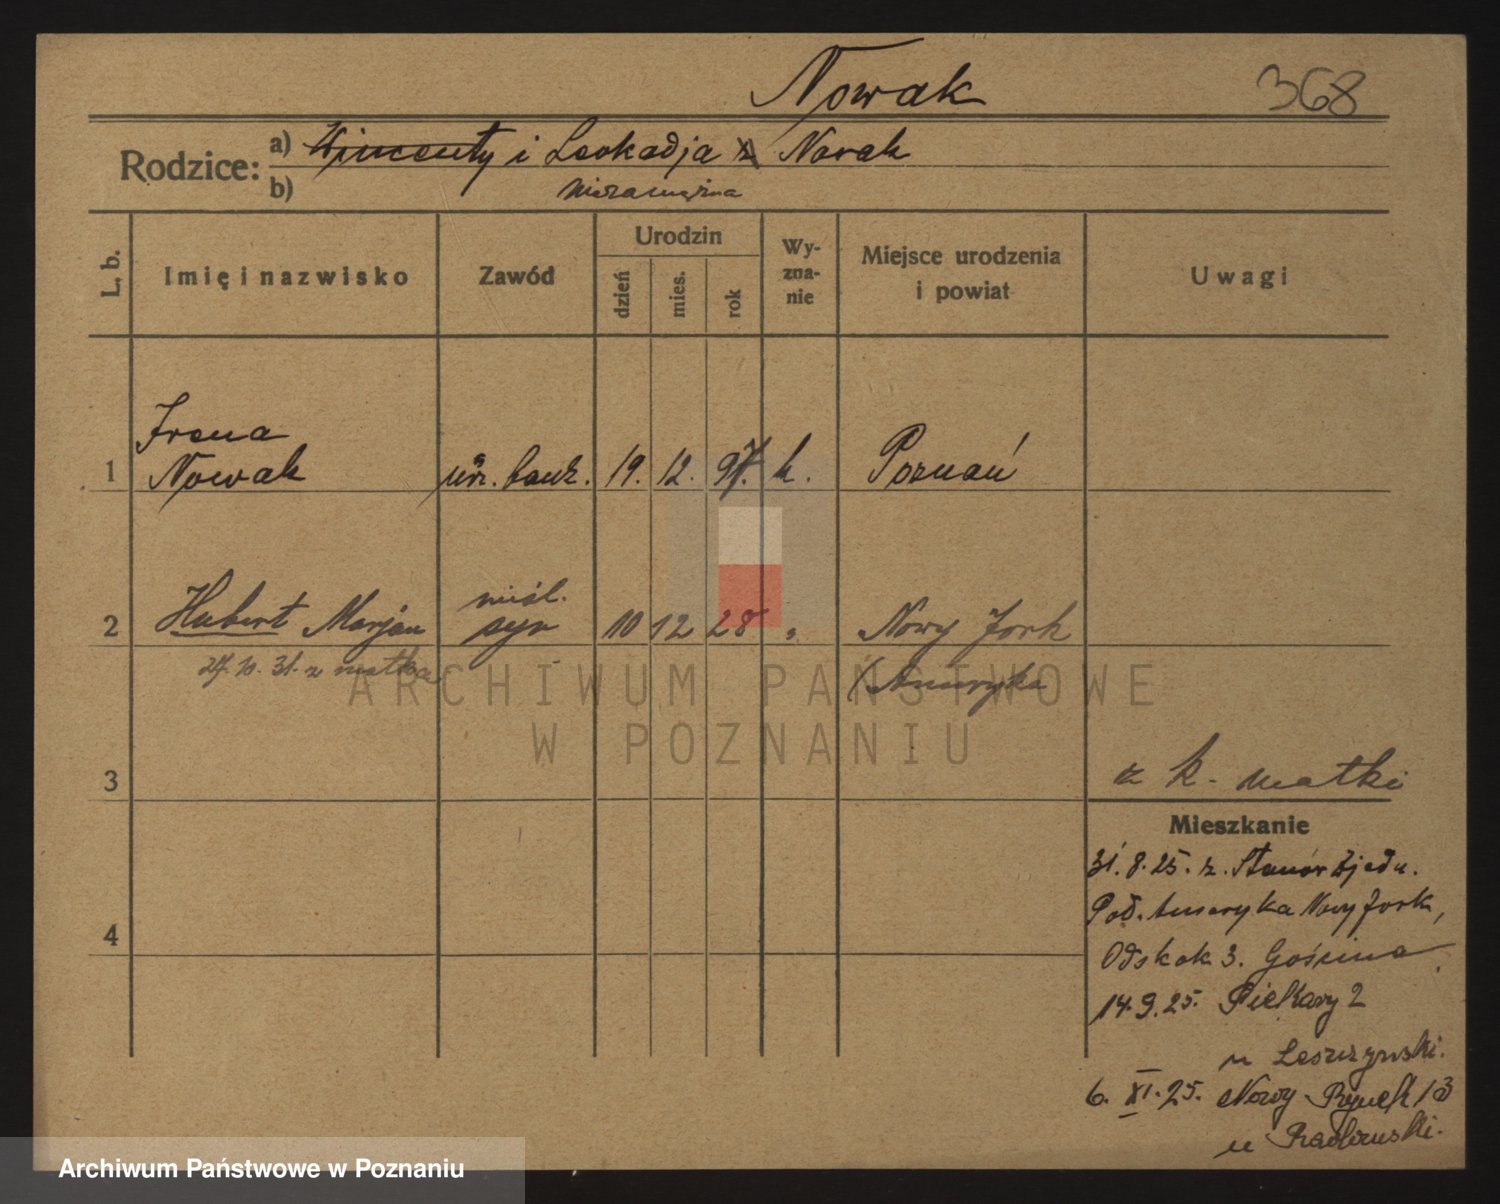 Nowak 368
Rodzice: a) Wincenty i Leokadja z Nowak
b) niezamężna
L. b. Imię i nazwisko Zawód Urodzin dzień mies. rok Wy-zna-nie Miejsce urodzenia i powiat Uwagi
Irena
1 Nowak urz. bank. 19. 12. 97. k. Poznań
niśl.
2 Hubert Marjan syn 10 12 28 " Nowy Jork
27. 10. 31. z matką (Ameryka
3 z k. matki
Mieszkanie
31. 8. 25. z. Stanów Zjedn.
Pod. Ameryka Nowy Jork,
4 3. Gościnna
14. 9. 25. Piekary 2
u Leszczyński.
6. XI. 25. Nowy Rynek 13
u
ARCHIWUM PAŃSTWOWE
W POZNANIU
Archiwum Państwowe w Poznaniu